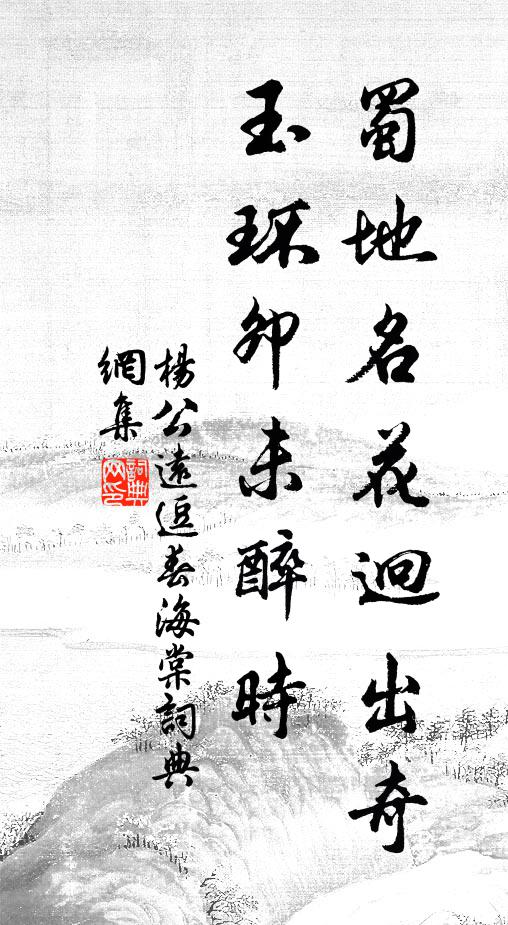 蜀地名花迥出奇
玉環卯未醉時
楊公遠逗春海棠詞典
網集
詞典
网印